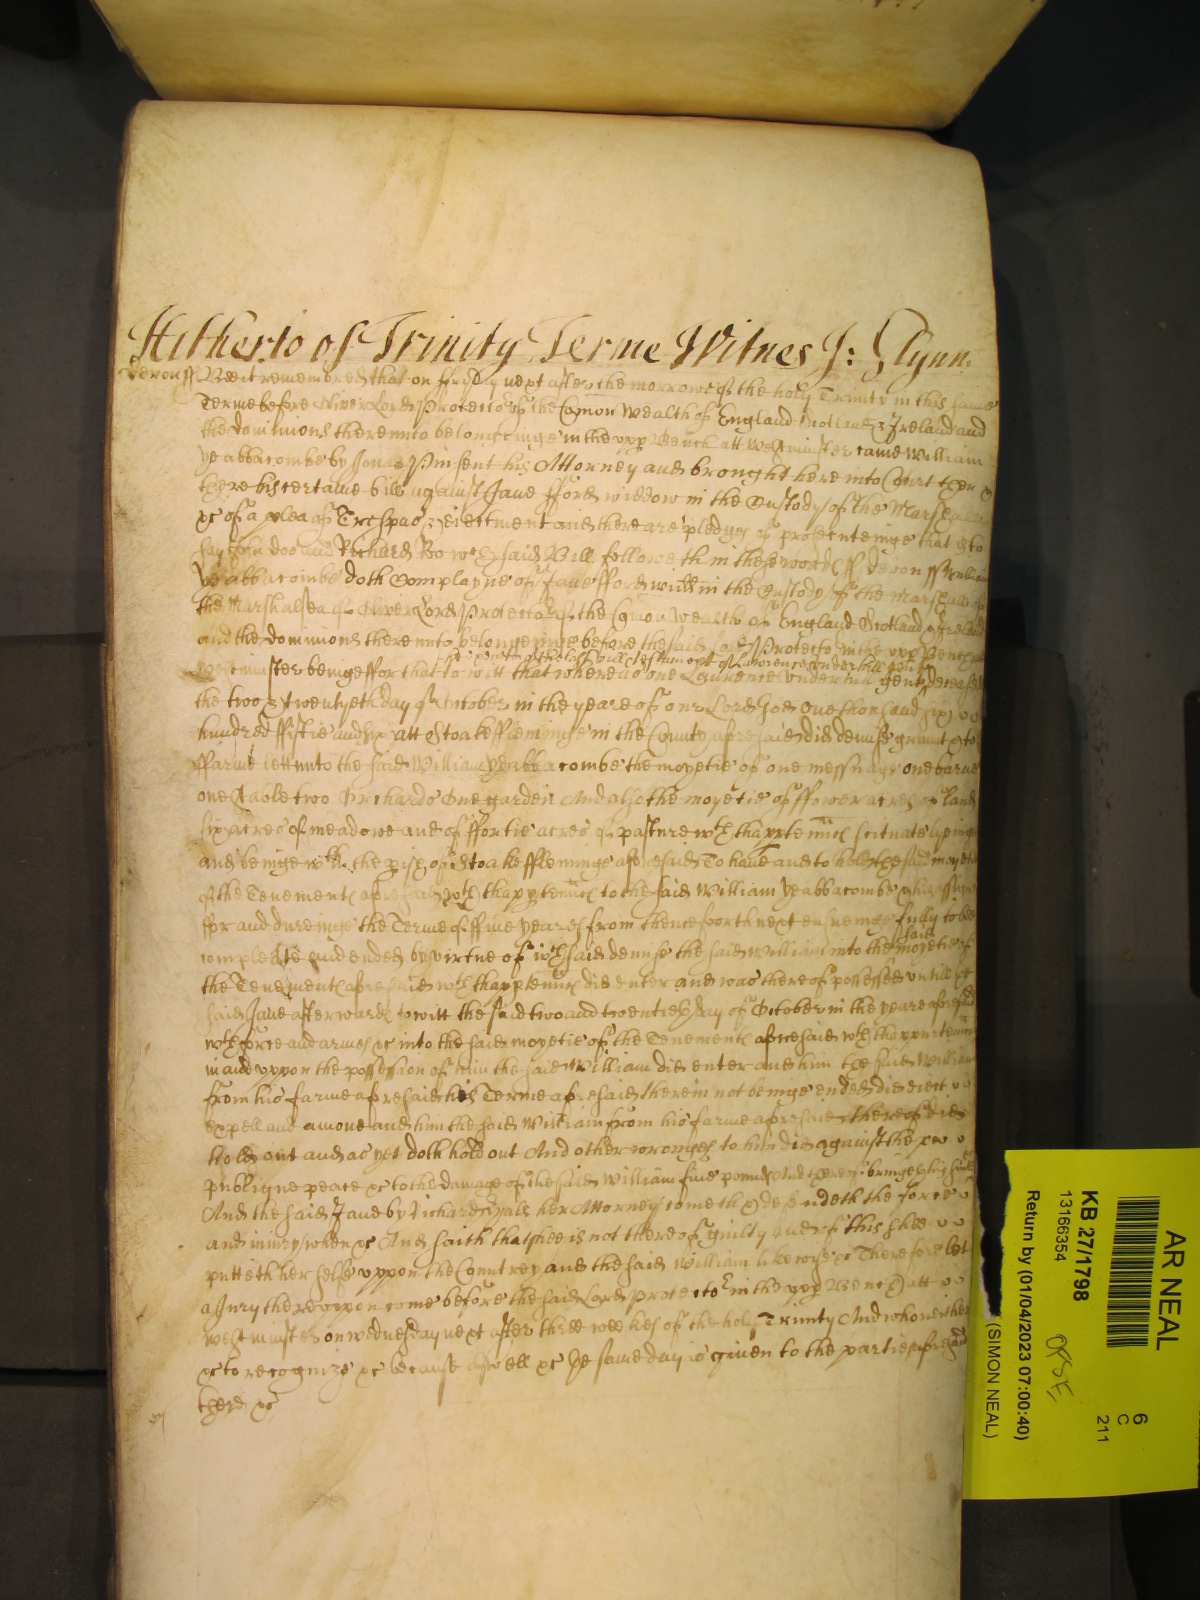 Hitherto of Trinity Terme Witnes J: Glynn.
Devon ss Bee it remembred that on ffryday next after the morrowe of the holy Trinity in this same
Terme before Oliver Lord Protector of the Comon Wealth of England Scotland & Ireland and
the dominions thereunto belongeinge in the upp Bench att Westminster came William
Yeabbacombe by Jonas Pinsent his Attorney and brought here into Court then &
there his certaine bill against Jane fford widdow in the Custody of the Marshall
&c of a plea of Trespas & eiectment and there are pledges of prosecuteinge that is to
say John doo and Richard Roo wch said Bill followeth in these words ss Devon ss William
Yeabbacombe doth Complayne of Jane fford widd in the Custody of the Marshall of
the Marshalsea of Oliver Lord Protector of the Comon Wealth of England Scotland & Ireland
and the dominions thereunto belongeinge before the said Lord Protector in the upp Bench att
the last will & testament of Lawrence Underhill gent
Westminster beinge ffor that to witt that whereas one Laurence Underhill gent deceased
the two & twentyeth day of October in the yeare of our Lord God One thousand six
hundred ffiftie and six att Stoakeffleminge in the County aforesaid did demise graunt & to
ffarme lett unto the said William Yeabbacombe the moyetie of one messuage one barne
one stable two Orchards One garden And also the moyetie of ffower acres of land
six acres of meadowe and of ffortie acres of pasture wth thapptennces scituate lyeing
and beinge wthin the pish of Stoakeffleminge aforesaid To have and to hold the said moyetie
of the Tenements aforesaid wth thapptennces to the said William Yeabbacombe & his assignes
ffor and dureinge the Terme of ffive yeares from thenceforth next ensueinge fully to bee
said
compleate and ended by virtue of wch said demise the said William into the moyetie of
the Tenements aforesaid wth thapptennces did enter and was thereof possessed untill the
said Jane afterwards to witt the said two and twentieth day of October in the yeare aforesaid
wth force and armes &c into the said moyetie of the Tenements aforesaid wth thappurtennces
in and uppon the possession of him the said William did enter and him the said William
from his farme aforesaid his Terme aforesaid therein not beinge ended did eiect
expell and amove and him the said William from his farme aforesaid thereof did
hold out and as yet doth hold out And other wronges to him did against the
publique peace &c to the damage of the said William five pounds And thereof bringeth his suite
And the said Jane by Richard Hals her Attorney cometh & defendeth the force
and iniury when &c And saith that shee is not thereof guilty and of this shee
putteth her selfe uppon the Countrey and the said William likewyse &c Therefore let
a Jury thereuppon come before the said Lord Protector in the upp Bench att
Westminster on Wednesday next after three weekes of the holy Trinity And who neither
&c to recognize &c because aswell &c The same day is given to the parties aforesaid
there &c
AR NEAL
6
C
211
KB 27/1798
13166354
Return by (01/04/2023 07:00:40)
(SIMON NEAL)